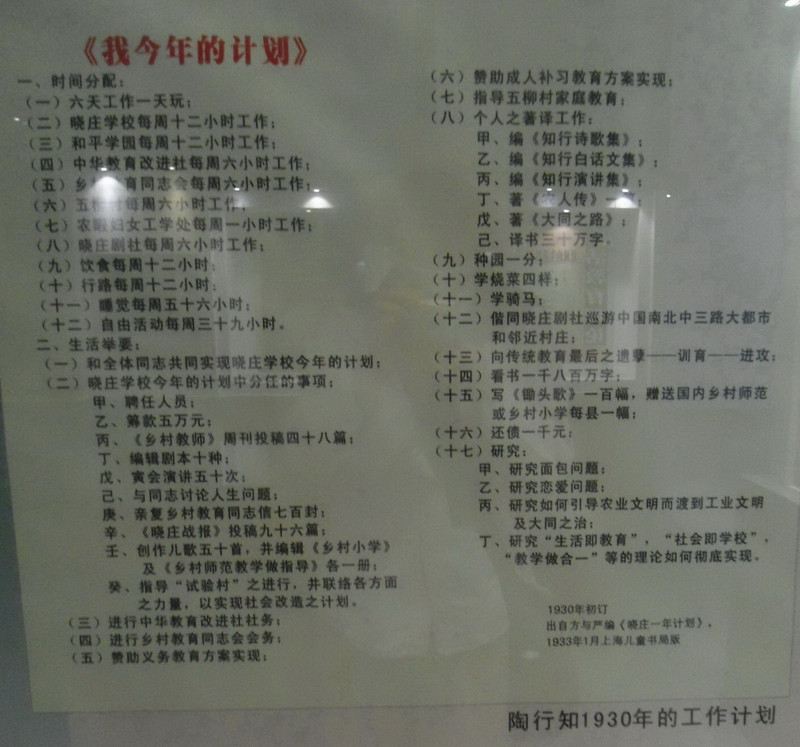 《我今年的计划》
一、时间分配：
（一）六天工作一天玩；
（二）晓庄学校每周十二小时工作；
（三）和平学园每周十二小时工作；
（四）中华教育改进社每周六小时工作；
（五）乡村教育同志会每周六小时工作；
（六）五柳村每周六小时工作；
（七）农暇妇女工学处每周一小时工作；
（八）晓庄剧社每周六小时工作；
（九）饮食每周十二小时；
（十）行路每周十二小时；
（十一）睡觉每周五十六小时；
（十二）自由活动每周三十九小时。
二、生活举要：
（一）和全体同志共同实现晓庄学校今年的计划；
（二）晓庄学校今年的计划中分任的事项：
甲、聘任人员；
乙、筹款五万元；
丙、《乡村教师》周刊投稿四十八篇；
丁、编辑剧本十种；
戊、寅会演讲五十次；
己、与同志讨论人生问题；
庚、亲复乡村教育同志信七百封；
辛、《晓庄战报》投稿九十六篇；
壬、创作儿歌五十首，并编辑《乡村小学》
及《乡村师范教学做指导》各一册；
癸、指导“试验村”之进行，并联络各方面
之力量，以实现社会改造之计划。
（三）进行中华教育改进社社务；
（四）进行乡村教育同志会会务；
（五）赞助义务教育方案实现；
（六）赞助成人补习教育方案实现；
（七）指导五柳村家庭教育；
（八）个人之著译工作：
甲、编《知行诗歌集》；
乙、编《知行白话文集》；
丙、编《知行演讲集》；
丁、著《人传》一
戊、著《大同之路》；
己、译书三十万字。
（九）种园一分；
（十）学烧菜四样；
（十一）学骑马；
（十二）偕同晓庄剧社巡游中国南北中三路大都市
和邻近村庄；
（十三）向传统教育最后之遗孽——训育——进攻；
（十四）看书一千八百万字；
（十五）写《锄头歌》一百幅，赠送国内乡村师范
或乡村小学每县一幅；
（十六）还债一千元；
（十七）研究：
甲、研究面包问题；
乙、研究恋爱问题；
丙、研究如何引导农业文明而渡到工业文明
及大同之治；
丁、研究“生活即教育”，“社会即学校”，
“教学做合一”等的理论如何彻底实现。
1930年初订
出自方与严编《晓庄一年计划》，
1933年1月上海儿童书局版
陶行知1930年的工作计划